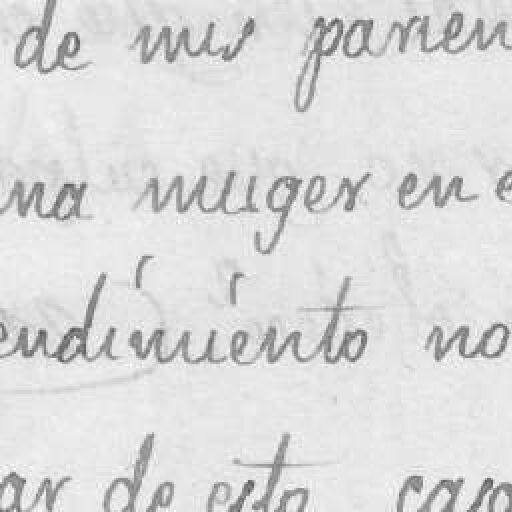 de mis parien
na muger en e
endimiento no
ar de esto caso